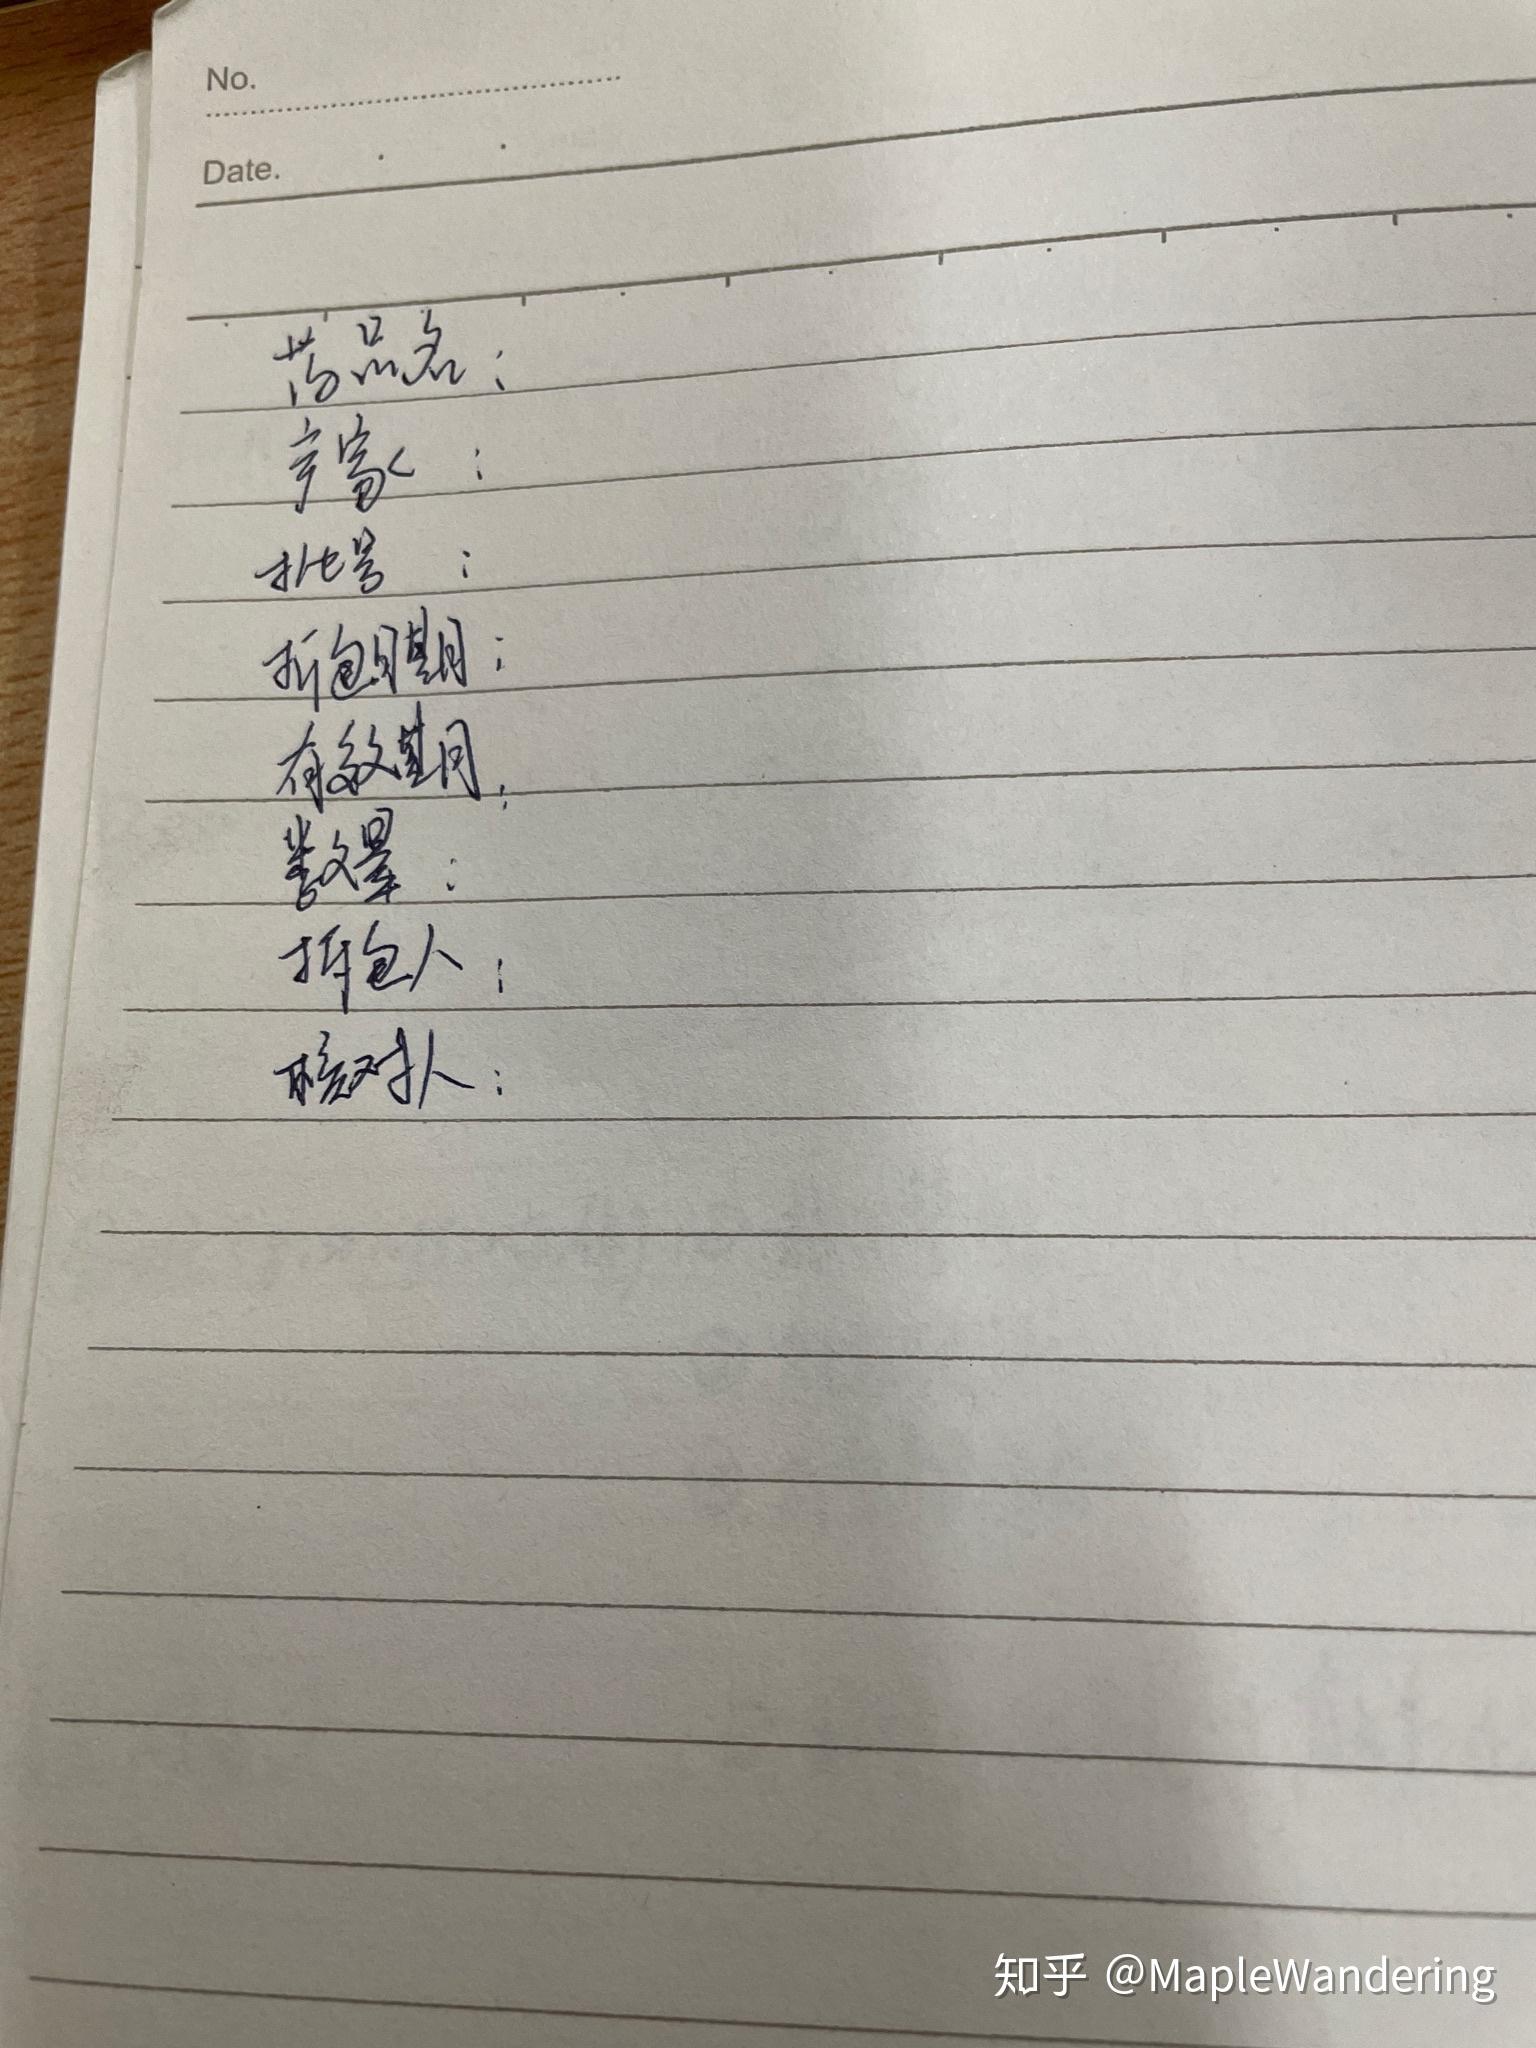 No.
Date.
药品名：
产家：
批号：
拆包日期：
有效期：
数量：
拆包人：
核对人：
知乎 @MapleWandering